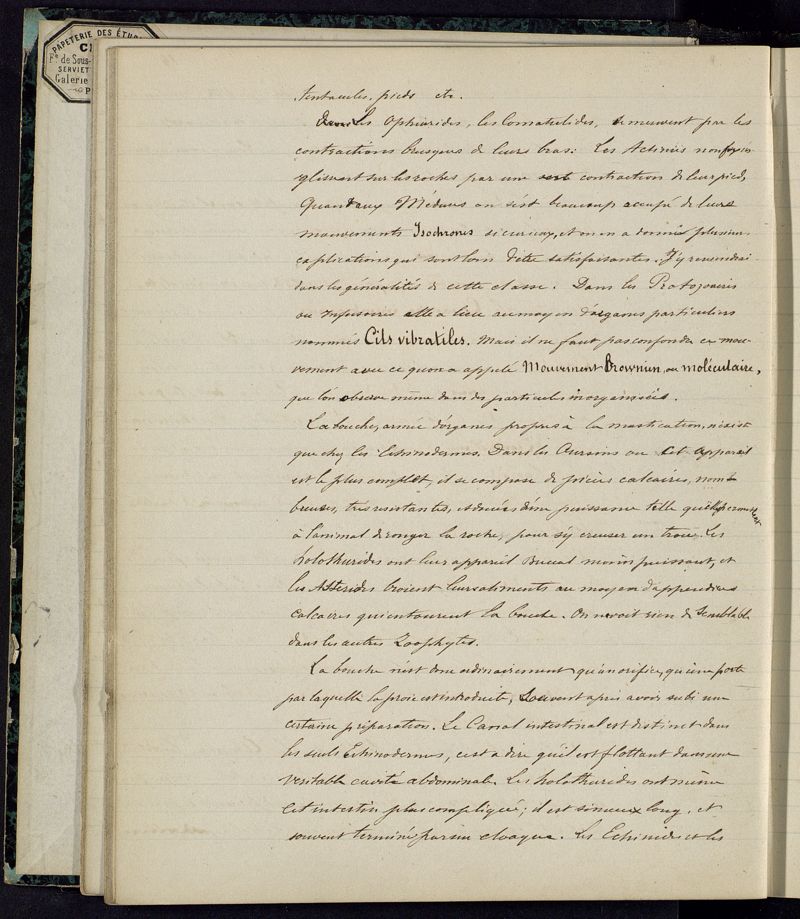 PAPETERIE DES ÉTU
Ft de Sous-
SERVIET
Galerie
P
tentacules, pieds etc.
Les Ophiurides, les Comatulides, se meuvent par les
contractions brusques de leurs bras. Les Actinies non fixées
glissent sur les roches par une contraction de leur pied,
Quant aux Méduses on s'est beaucoup occupé de leurs
mouvements Isochrones si curieux, et on en a donné plusieurs
explications qui sont loin d'être satisfaisantes. J'y reviendrai
dans les généralités de cette classe. Dans les Protozoaires
ou Infusoires elle a lieu au moyen d'organes particuliers
nommés Cils vibratiles. Mais il ne faut pas confondre ce mou-
vement avec ce qu'on a appelé Mouvement Brownien, ou moléculaire,
que l'on observe même dans des particules inorganisées.
La bouche, armée d'organes propres à la mastication, n'existe
que chez les Echinodermes. Dans les Oursins où cet appareil
est le plus complet, il se compose de pièces calcaires, nom-
breuses, très resistantes, et douées d'une puissance telle qu'elles permettent
à l'animal de ronger la roche, pour s'y creuser un trou. Les
Holothurides ont leur appareil Buccal moins puissant, et
les Astérides broient leurs aliments au moyen d'appendices
calcaires qui entourent la bouche. On ne voit rien de semblable
dans les autres Zoophytes.
La bouche n'est donc ordinairement qu'un orifice, qu'une porte
par laquelle la proie est introduite, souvent après avoir subi une
certaine préparation. Le Canal intestinal est distinct dans
les seuls Echinodermes, c'est a dire qu'il est flottant dans une
veritable cavité abdominale. Les Holothurides ont même
cet intestin plus compliqué; il est sinueux long, et
souvent terminé par un cloaque. Les Echinides et les